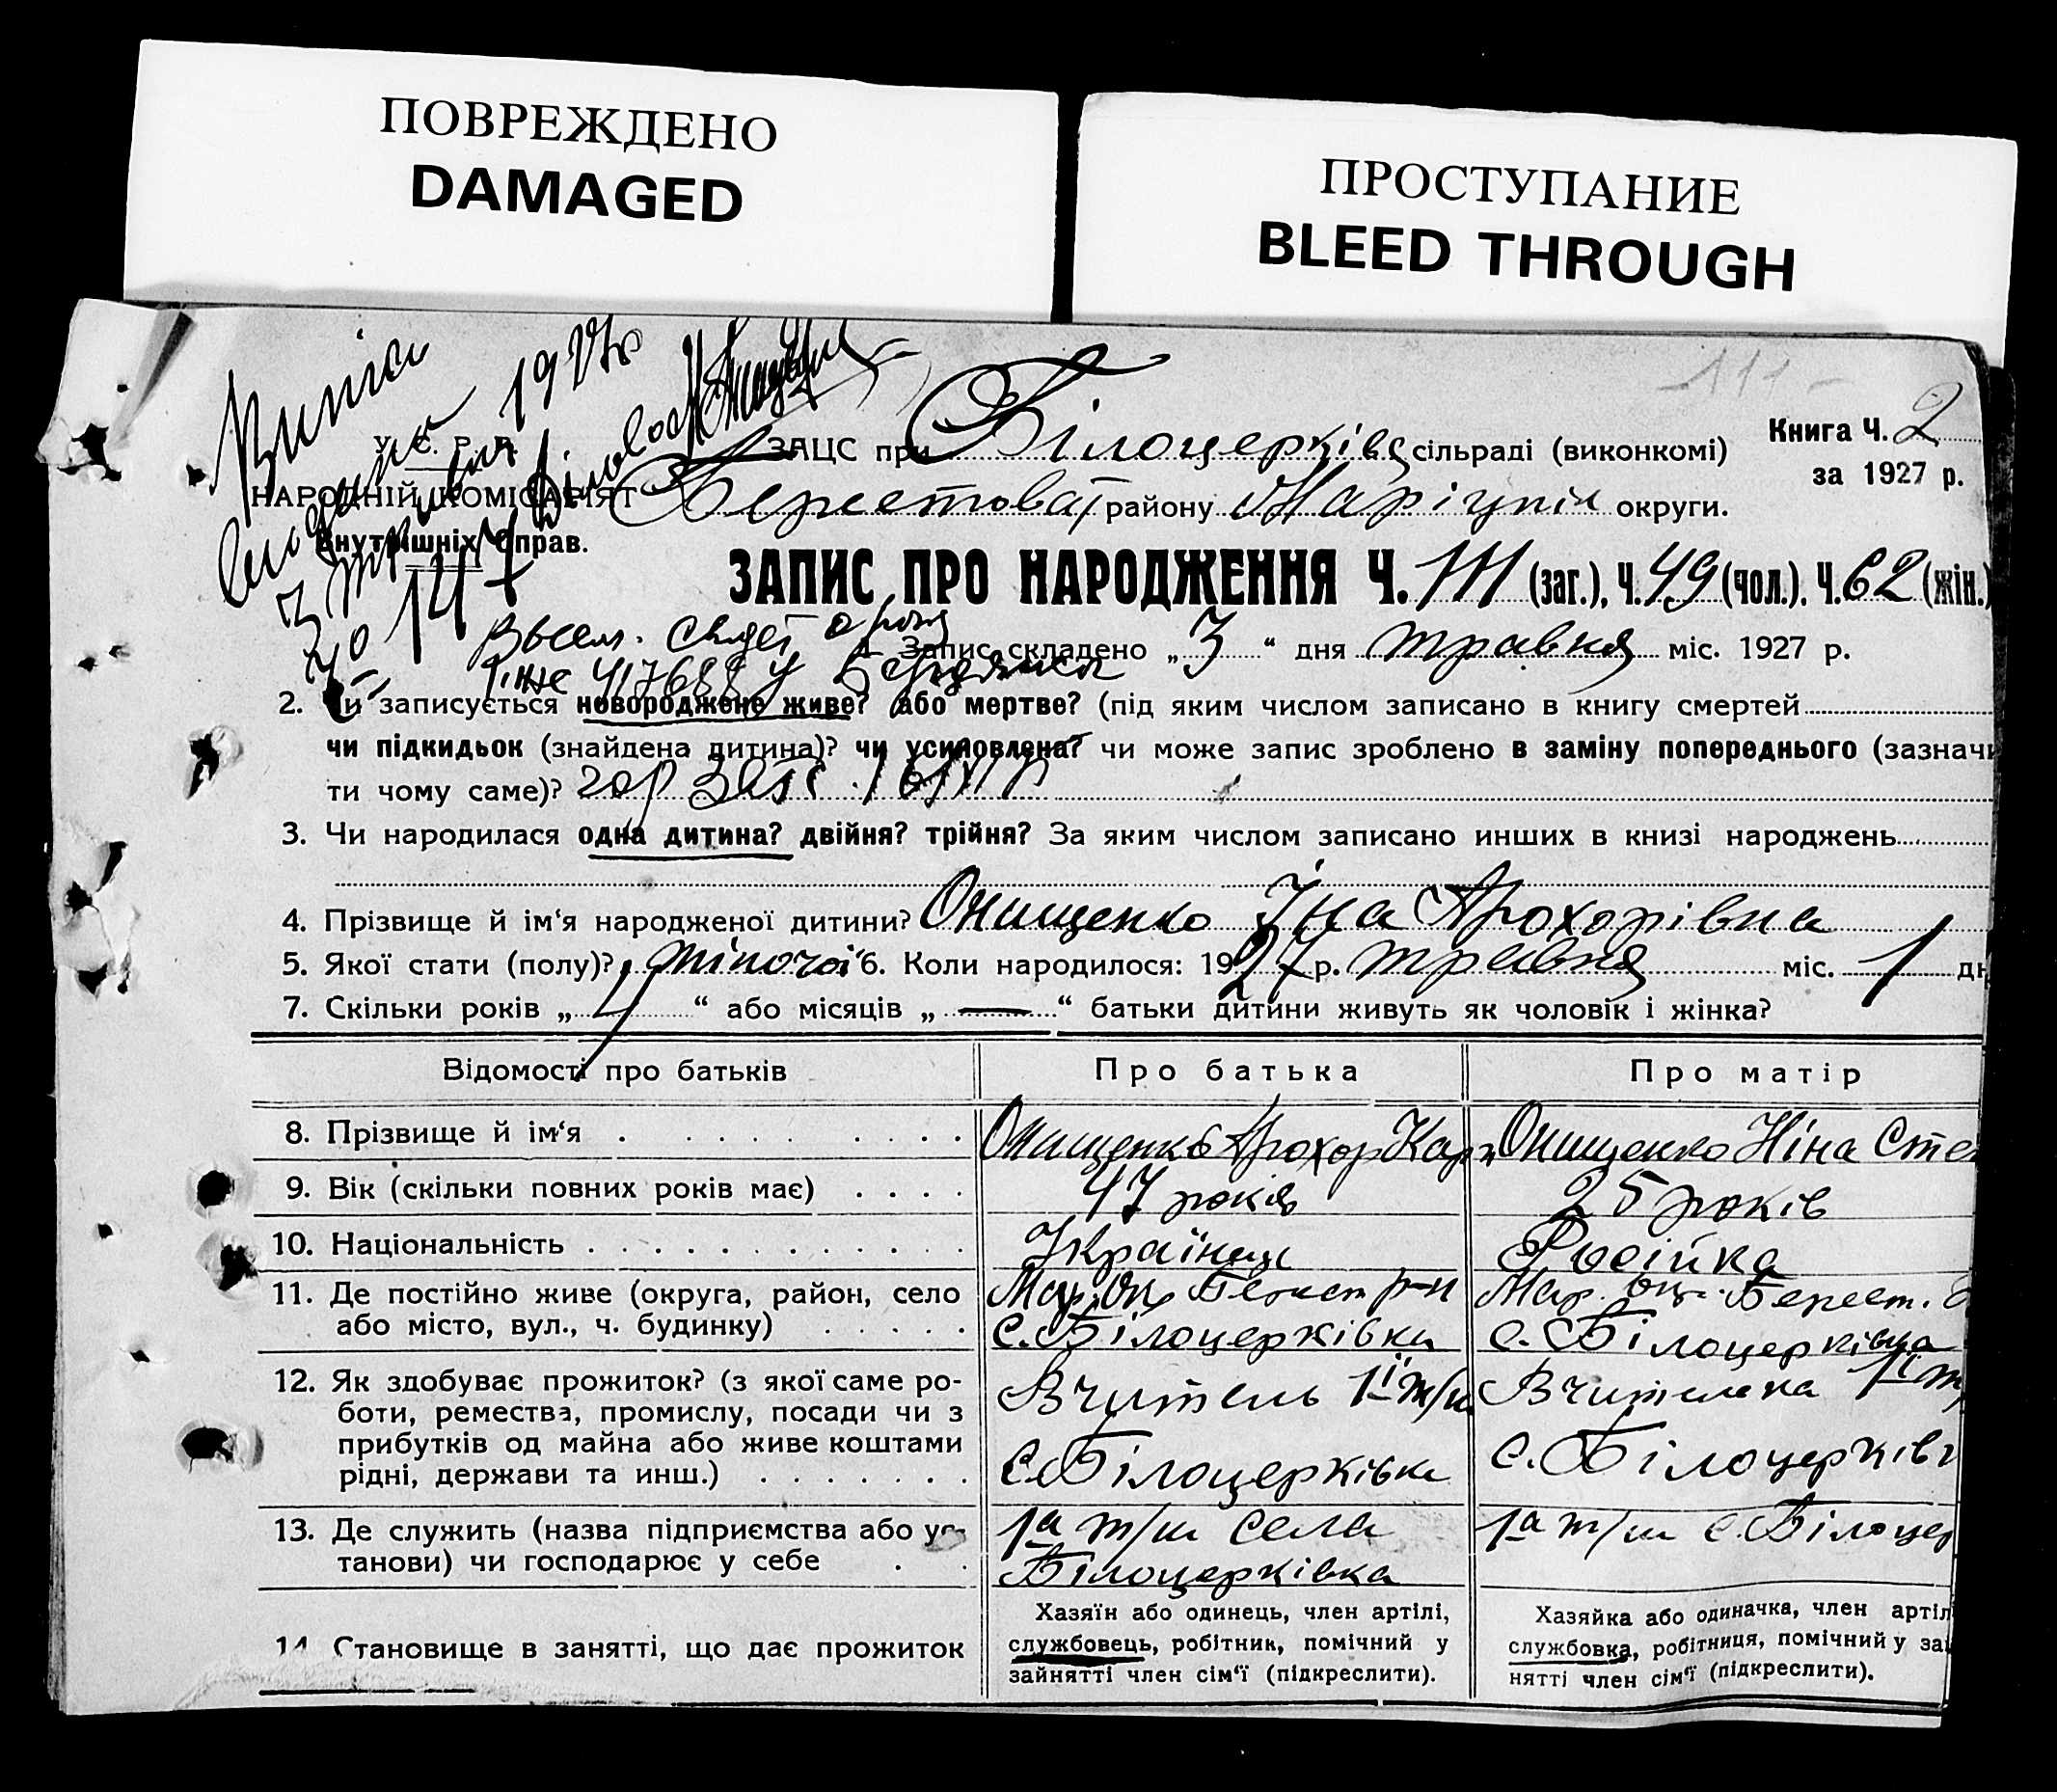 ПОВРЕЖДЕНО
DAMAGED
ПРОСТУПАНИЕ
BLEED THROUGH
111
У. С. Р. Р.
НАРОДНІЙ КОМІСАРІЯТ
Внутрішніх Справ.
147
ЗАЦС при Білоцерків сільраді (виконкомі)
Берестоват району Маріупіл округи.
Книга Ч. 2
за 1927 р.
ЗАПИС ПРО НАРОДЖЕННЯ Ч. 111 (заг.), Ч. 49 (чол.), Ч. 62 (жін.)
1. Запис складено „ 3 “ дня травня міс. 1927 р.
2. Чи записується новороджене живе? або мертве? (під яким числом записано в книгу смертей
чи підкидьок (знайдена дитина)? чи усиновлена? чи може запис зроблено в заміну попереднього (зазначи
ти чому саме)? гор
3. Чи народилася одна дитина? двійня? трійня? За яким числом записано инших в книзі народжень
4. Прізвище й ім‘я народженої дитини? Онищенко Іна Прохорівна
5. Якої стати (полу)? жіночої 6. Коли народилося: 1927 р. травня міс. 1 дн
7. Скільки років „ 4 “ або місяців „ — “ батьки дитини живуть як чоловік і жінка?
Відомості про батьків Про батька Про матір
8. Прізвище й ім‘я Онищенко Прохор Карп Онищенко Ніна Сте
9. Вік (скільки повних років має) 47 років 25 років
10. Національність Українець Російка
11. Де постійно живе (округа, район, село Мар. Ок. Берест р-н Мар. Ок. Берест.
або місто, вул., ч. будинку) с. Білоцерківка с. Білоцерківка
12. Як здобуває прожиток? (з якої саме ро-
боти, ремества, промислу, посади чи з
прибутків од майна або живе коштами
рідні, держави та инш.)
Вчитель 1ї т/ш
с. Білоцерківка
Вчителька 1ї т
с. Білоцерківк
13. Де служить (назва підприємства або ус-
танови) чи господарює у себе
1а т/ш села
Білоцерківка
1а т/ш с. Білоцер
14. Становище в занятті, що дає прожиток
Хазяїн або одинець, член артілі,
службовець, робітник, помічний у
зайнятті член сім‘ї (підкреслити).
Хазяйка або одиначка, член артіл
службовка, робітниця, помічний у зай
нятті член сім‘ї (підкреслити).